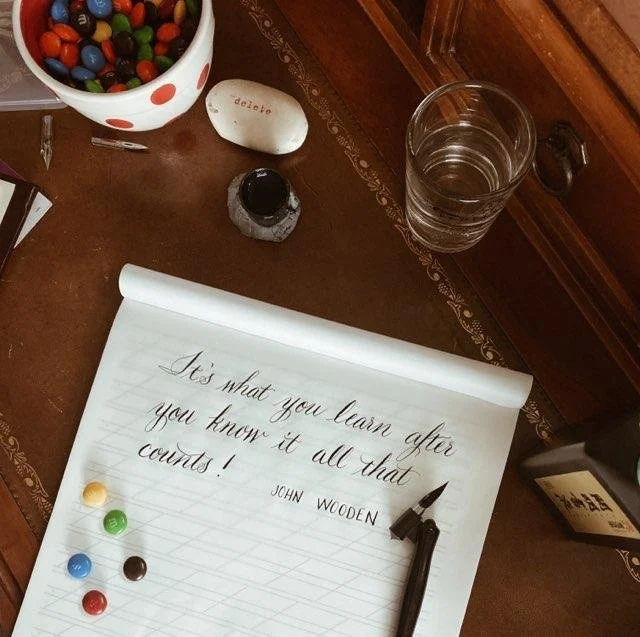 delete
It's what you learn after
you know it all that
counts!
JOHN WOODEN